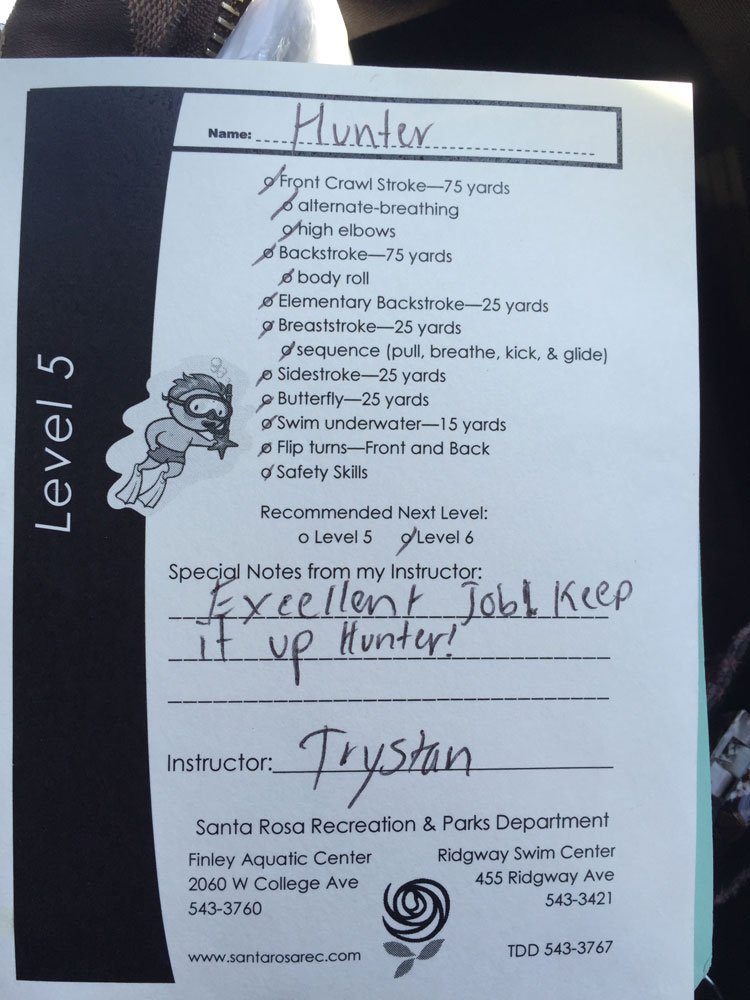 Name: Hunter
Front Crawl Stroke—75 yards
alternate-breathing
high elbows
Backstroke—75 yards
body roll
Elementary Backstroke—25 yards
Breaststroke—25 yards
sequence (pull, breathe, kick, & glide)
Sidestroke—25 yards
Butterfly—25 yards
Swim underwater—15 yards
Flip turns—Front and Back
Safety Skills
Level 5
Recommended Next Level:
o Level 5 o Level 6
Special Notes from my Instructor:
Excellent Job! Keep
it up Hunter!
Instructor: Trystan
Santa Rosa Recreation & Parks Department
Finley Aquatic Center
2060 W College Ave
543-3760
www.santarosarec.com
Ridgway Swim Center
455 Ridgway Ave
543-3421
TDD 543-3767